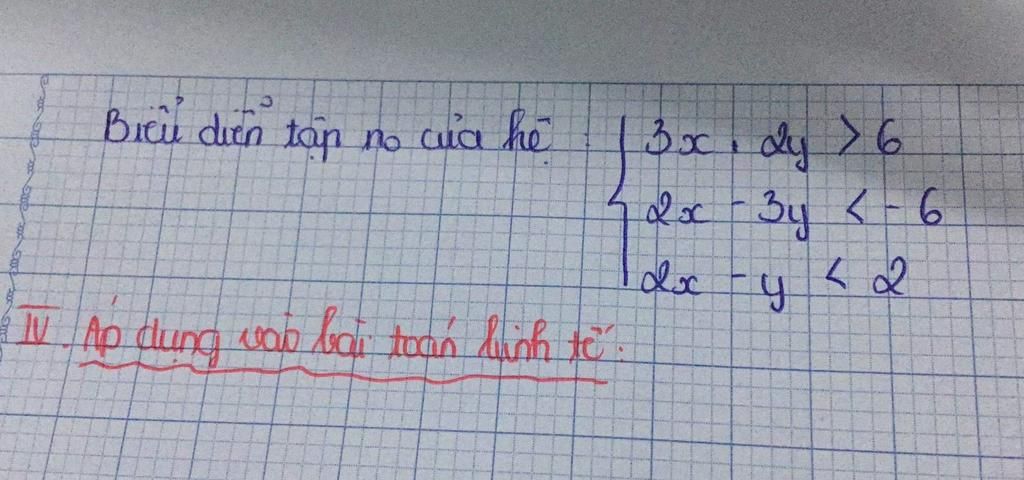 Biểu diễn tập no của hệ { 3x + 2y > 6
2x - 3y < - 6
2x - y < 2
IV. Áp dụng vào bài toán kinh tế.